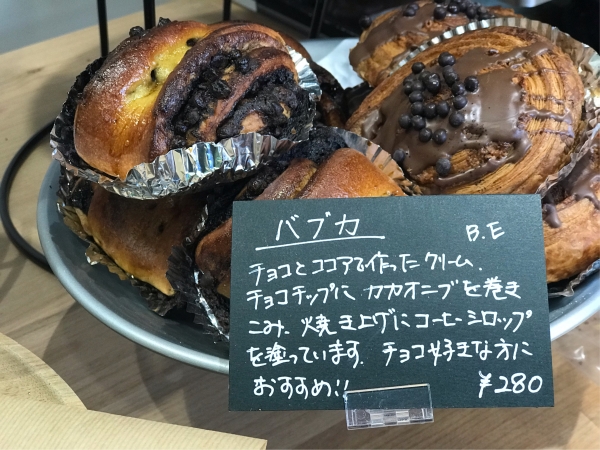 バブカ B.E
チョコとココアで作ったクリーム、
チョコチップに カカオニブを巻き
こみ、焼き上げにコーヒーシロップ
を塗っています。チョコ好きな方に
おすすめ!! ¥280